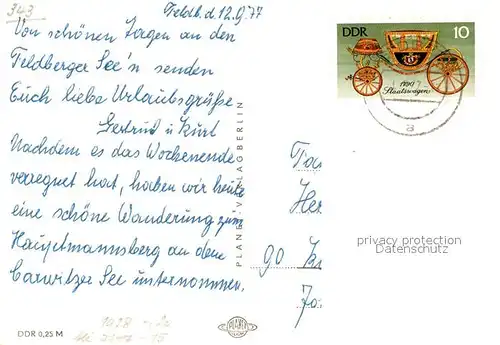 343
Feldb. d. 12.9.77
Von schönen Tagen an den
Feldberger See'n senden
Euch liebe Urlaubsgrüße
Gertrud u. Kurt
Nachdem es das Wochenende
verregnet hat, haben wir heute
eine schöne Wanderung zum
Hauptmannsberg an dem
Carwitzer See unternommen.
DDR 0,25 M
PLANET-VERLAG BERLIN
PLANET
DDR 10
1790
Staatswagen
a
90
privacy protection
Datenschutz